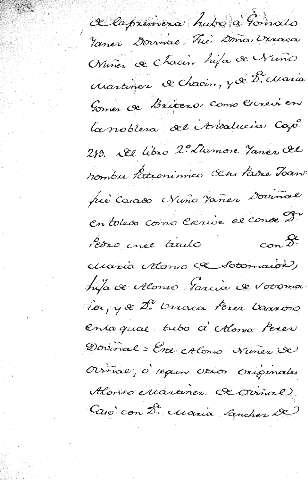 de la primera hubo á Gonzalo
Yanez Doviñal. Fué Doña Urraca
Nuñez de Chacin hija de Nuño
Martinez de Chacin, y de Dª Maria
Gomez de Briteros como escrevi en
la nobleza del Andalucia Capº
213. del libro 2º llamose Yanez del
nombre Patronimico de su Padre Joan
fué Casado Nuño Yañez Doviñal
en toledo como escrive el conde Dn
Pedro en el titulo con Dª
Maria Alonso de Sotomaior,
hija de Alonso Garcia de Sotoma
ior, y de Dª Urraca Perez Barroso
en la qual tubo á Alonso Perez
Doviñal = Este Alonso Nuñez de
Oviñal, ó segun otros originales
Alonso Martinez de Oviñal,
Casó con Dª Maria Sanchez de